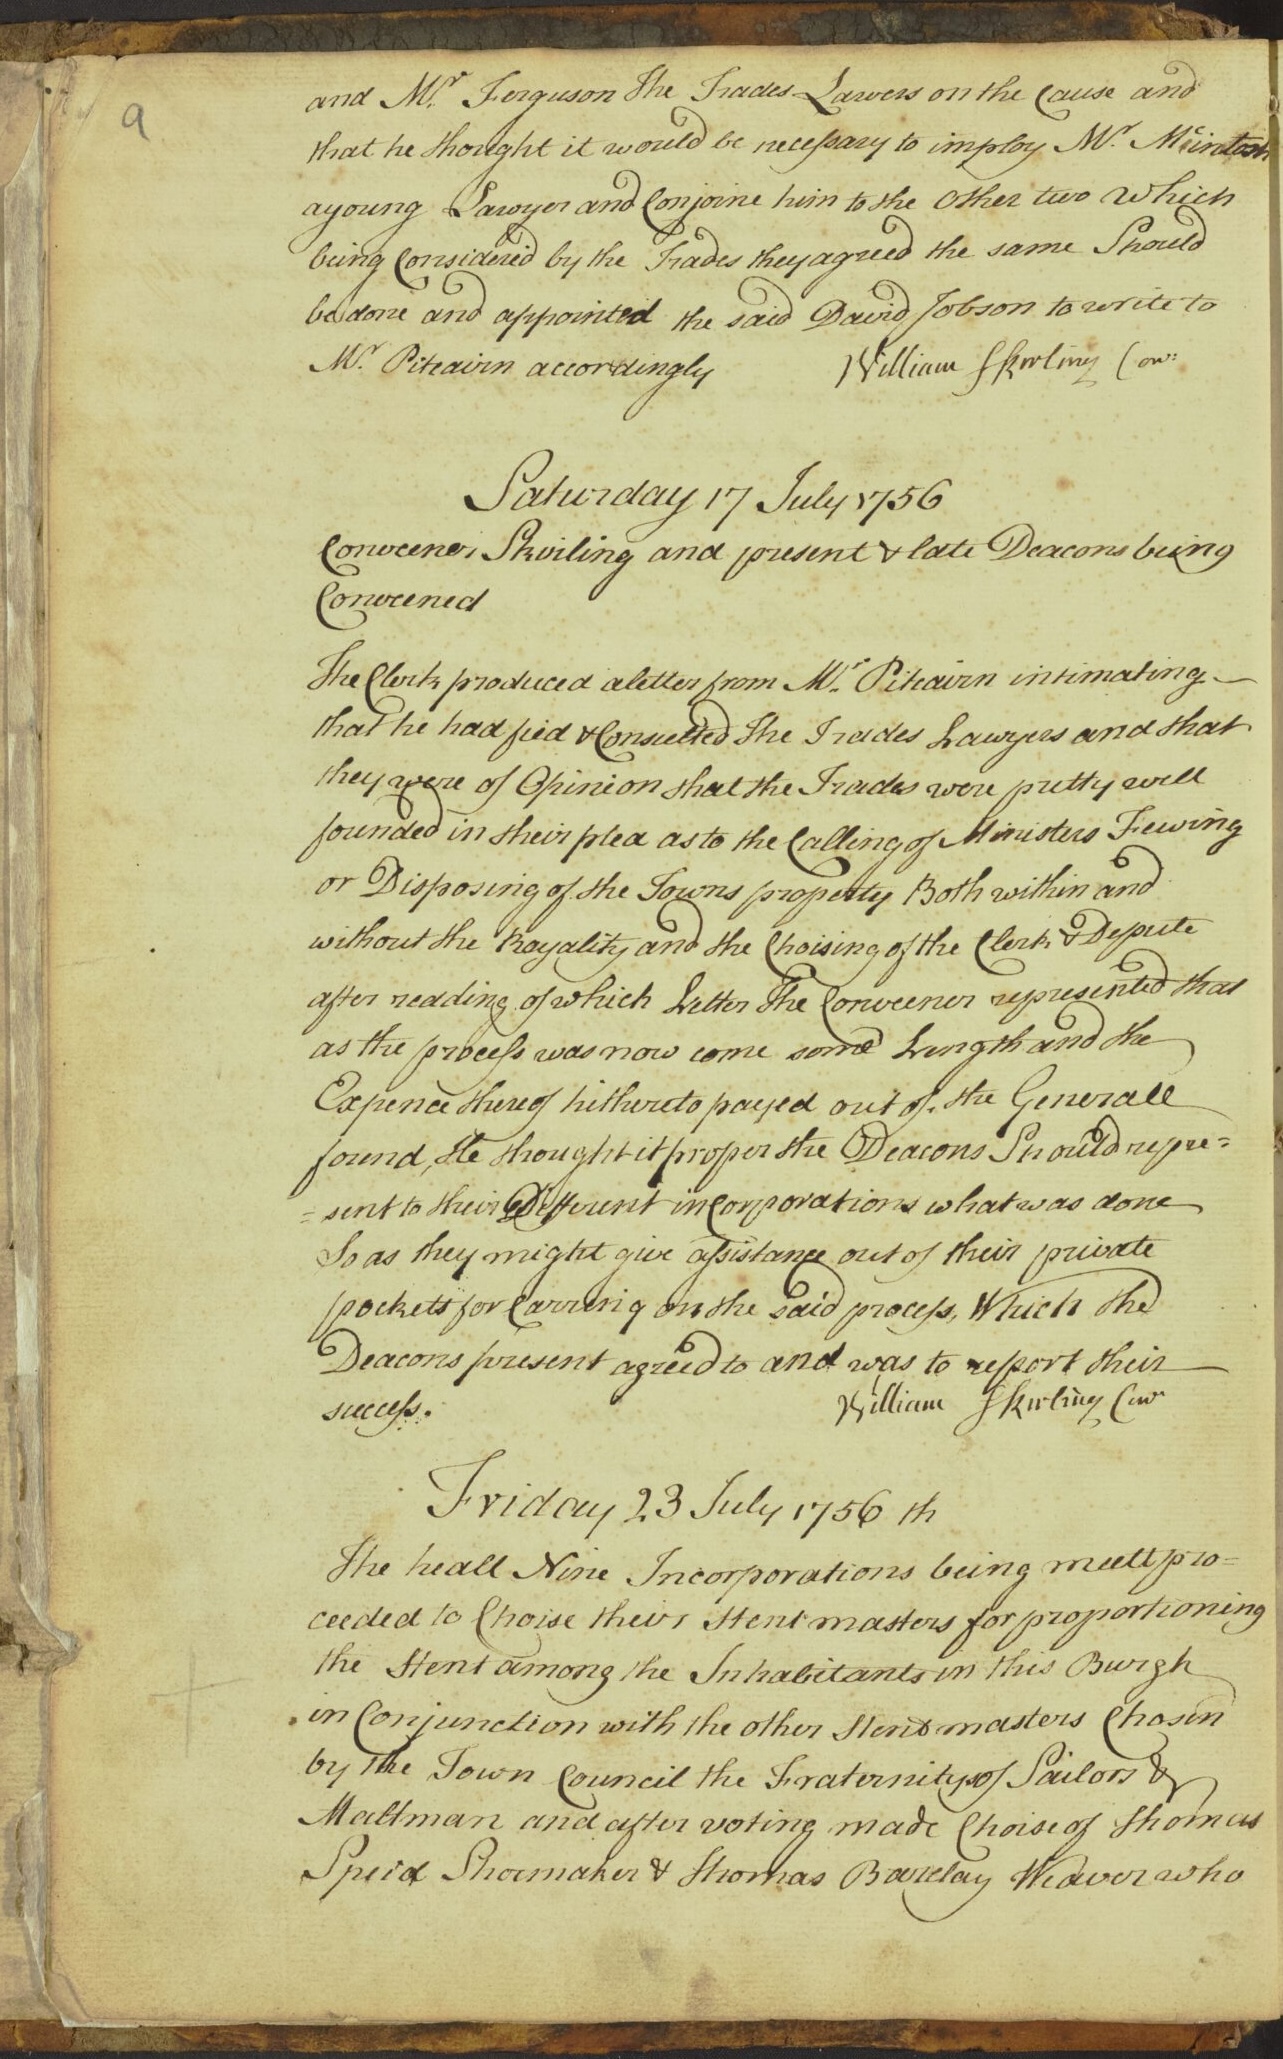 9
and Mr. Ferguson The Trades Lawers on the Cause and
that he thought it would be necessary to imploy Mr. McIntosh
a young Lawyer and Conjoine him to the Other two Which
being Considered by the Trades they agreed the same Should
be done and appointed the said David Jobson to write to
Mr. Pitcairn accordingly William Skirling Con:
Saturday 17 July 1756
Conveener Skirling and present & late Deacons being
Conveened
The Clerk produced a letter from Mr. Pitcairn intimating
that he had fied & Consulted The Trades Lawyers and that
they were of Opinion that the Trades were pretty well
founded in their plea as to the Calling of Ministers Fewing
or Disposing of the Towns property Both within and
without the Royality and the Choising of the Clerk & Depute
after reading of which Letter The Conveener represented that
as the process was now come some Length and the
Expence thereof hithereto payed out of the Generall
found, He thought it proper the Deacons Should repre=
=sent to their Different inCorporations what was done
So as they might give assistance out of their private
pockets for Carrering on the said process, Which the
Deacons present agreed to and was to report their
success. William Skirling Con
Friday 23 July 1756 th
The heall Nine Incorporations being meett pro=
ceeded to Choise their Stent masters for proportioning
the Stent among the Inhabitants in this Burgh
in Conjunction with the other Stent masters Chosen
by the Town Council the Fraternitys of Sailors &
Maltman and after voting made Choise of Thomas
Speid Shoemaker & Thomas Barclay Weaver who